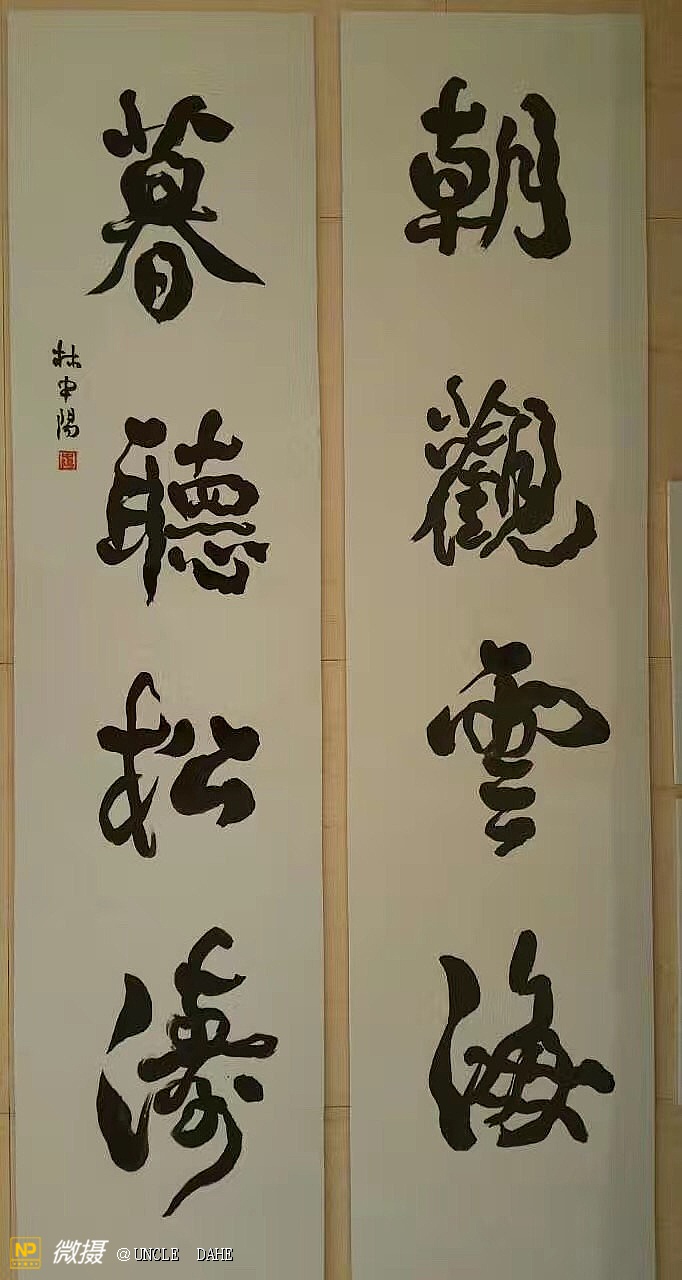 朝觀雲海
暮聽松濤
林中陽
NP 微摄 @UNCLE DAHE